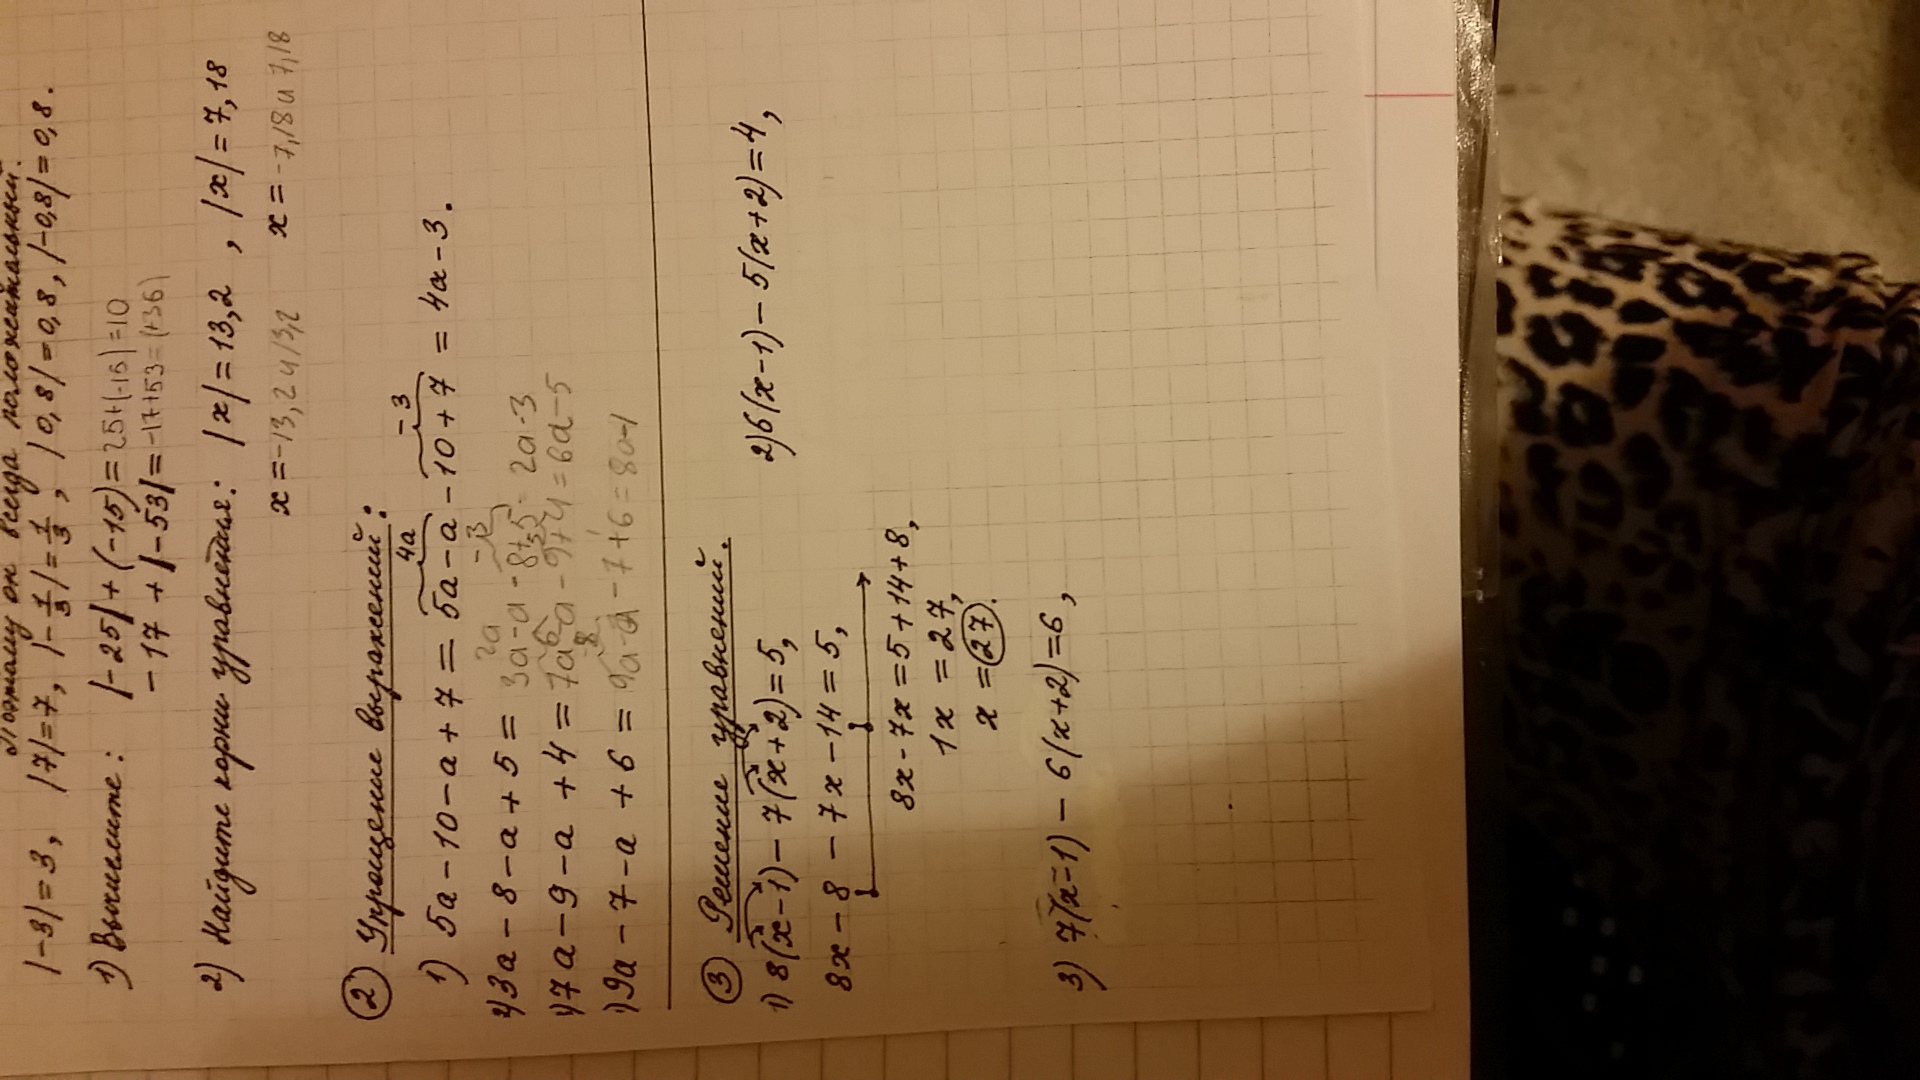 Поэтому он всегда положительный.
|-3|=3, |7|=7, |-1/3|=1/3, |0,8|=0,8, |-0,8|=0,8.
1) Вычислите: |-25|+(-15)=25+(-15)=10
-17+|-53|=-17+53=(+36)
2) Найдите корни уравнения: |x|=13,2, |x|=7,18
x=-13,2и13,2 x=-7,18и7,18
② Упрощение выражений:
4a -3
1) 5a-10-a+7=5a-a-10+7=4a-3.
2a -3
2) 3a-8-a+5=3a-a-8+5=2a-3
6
) 7a-9-a+4=7a-a-9+4=6a-5
8
) 9a-7-a+6=9a-a-7+6=8a-1
③ Решение уравнений.
1) 8(x-1)-7(x+2)=5, 2) 6(x-1)-5(x+2)=4,
8x-8-7x-14=5,
8x-7x=5+14+8,
1x=27,
x=27.
3) 7(x-1)-6(x+2)=6,